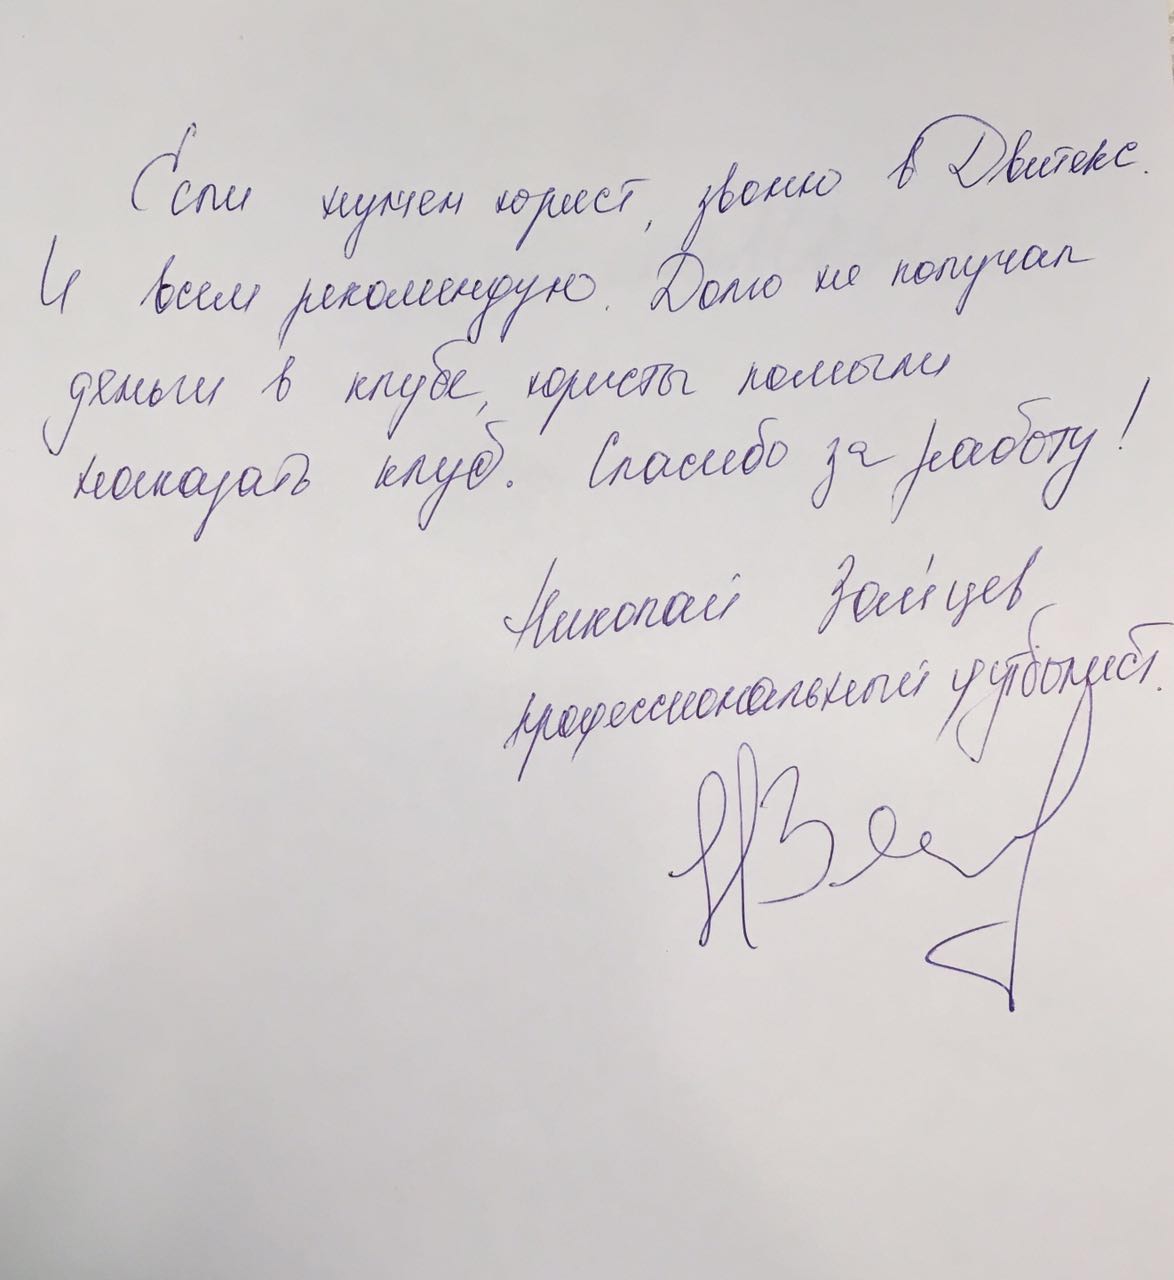 Если нужен юрист, звоню в Двитекс.
И всем рекомендую. Долго не получал
деньги в клубе, юристы помогли
наказать клуб. Спасибо за работу!
Николай Зайцев
профессиональный футболист.